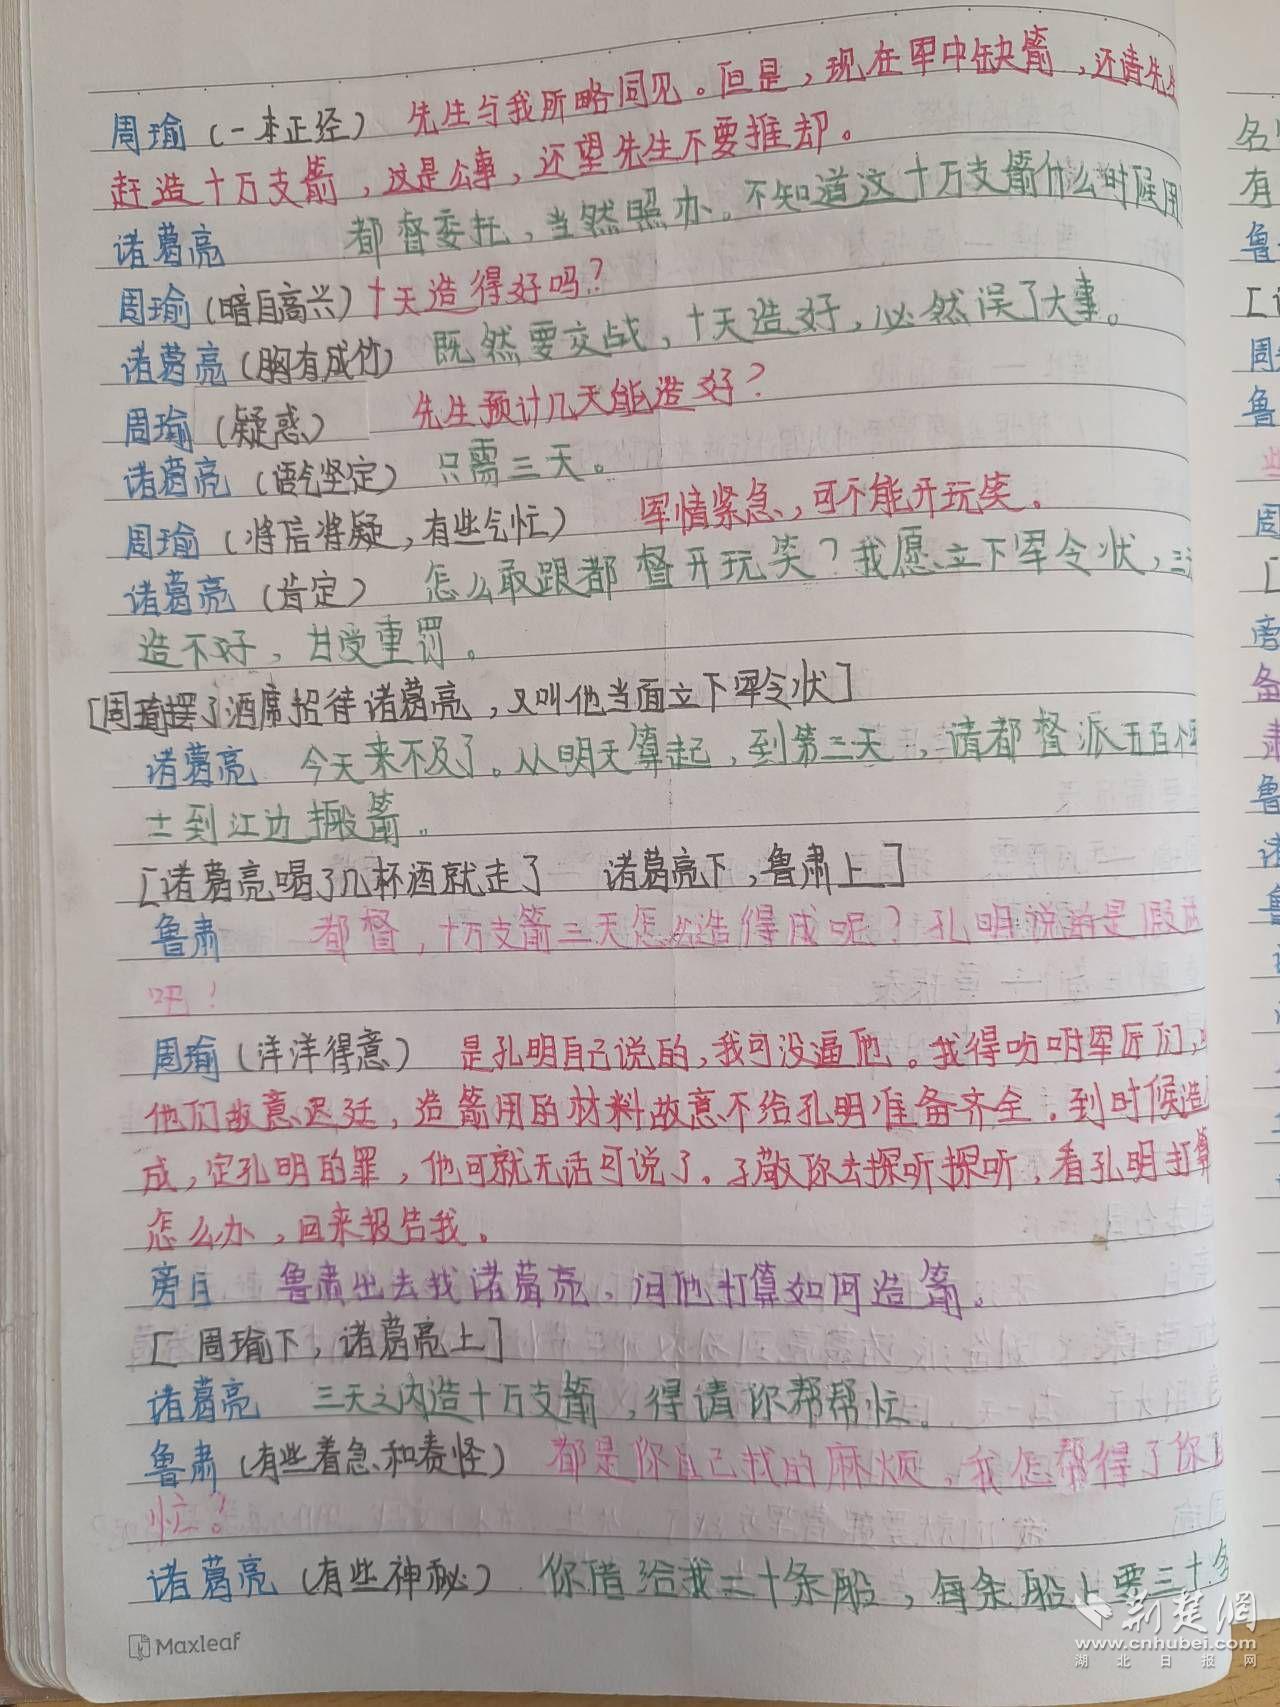 周瑜（一本正经） 先生与我所略同见。但是，现在军中缺箭，还请先生
赶造十万支箭，这是公事，还望先生不要推却。
诸葛亮 都督委托，当然照办。不知道这十万支箭什么时候用
周瑜（暗自高兴）十天造得好吗？
诸葛亮（胸有成竹） 既然要交战，十天造好，必然误了大事。
周瑜（疑惑） 先生预计几天能造好？
诸葛亮（语气坚定） 只需三天。
周瑜（将信将疑，有些气忙） 军情紧急，可不能开玩笑。
诸葛亮（肯定） 怎么敢跟都督开玩笑？我愿立下军令状，三
造不好，甘受重罚。
［周瑜摆了酒席招待诸葛亮，又叫他当面立下军令状］
诸葛亮 今天来不及了。从明天算起，到第三天，请都督派五百个
士到江边搬箭。
［诸葛亮喝了几杯酒就走了 诸葛亮下，鲁肃上］
鲁肃 都督，十万支箭三天怎么造得成呢？孔明说的是假
吧！
周瑜（洋洋得意） 是孔明自己说的，我可没逼他。我得吩咐军匠们，
他们故意迟延，造箭用的材料故意不给孔明准备齐全。到时候造
成，定孔明的罪，他可就无话可说了。子敬你去探听探听，看孔明打算
怎么办，回来报告我。
旁白 鲁肃出去找诸葛亮，问他打算如何造箭。
［周瑜下，诸葛亮上］
诸葛亮 三天之内造十万支箭，得请你帮帮忙。
鲁肃（有些着急和责怪） 都是你自己找的麻烦，我怎帮得了你
忙？
诸葛亮（有些神秘） 你借给我二十条船，每条船上要三十
Maxleaf
名
有
鲁
［
周
鲁
些
周
［
旁
备
肃
鲁
诸
鲁
荆楚网
www.cnhubei.com
湖北日报网